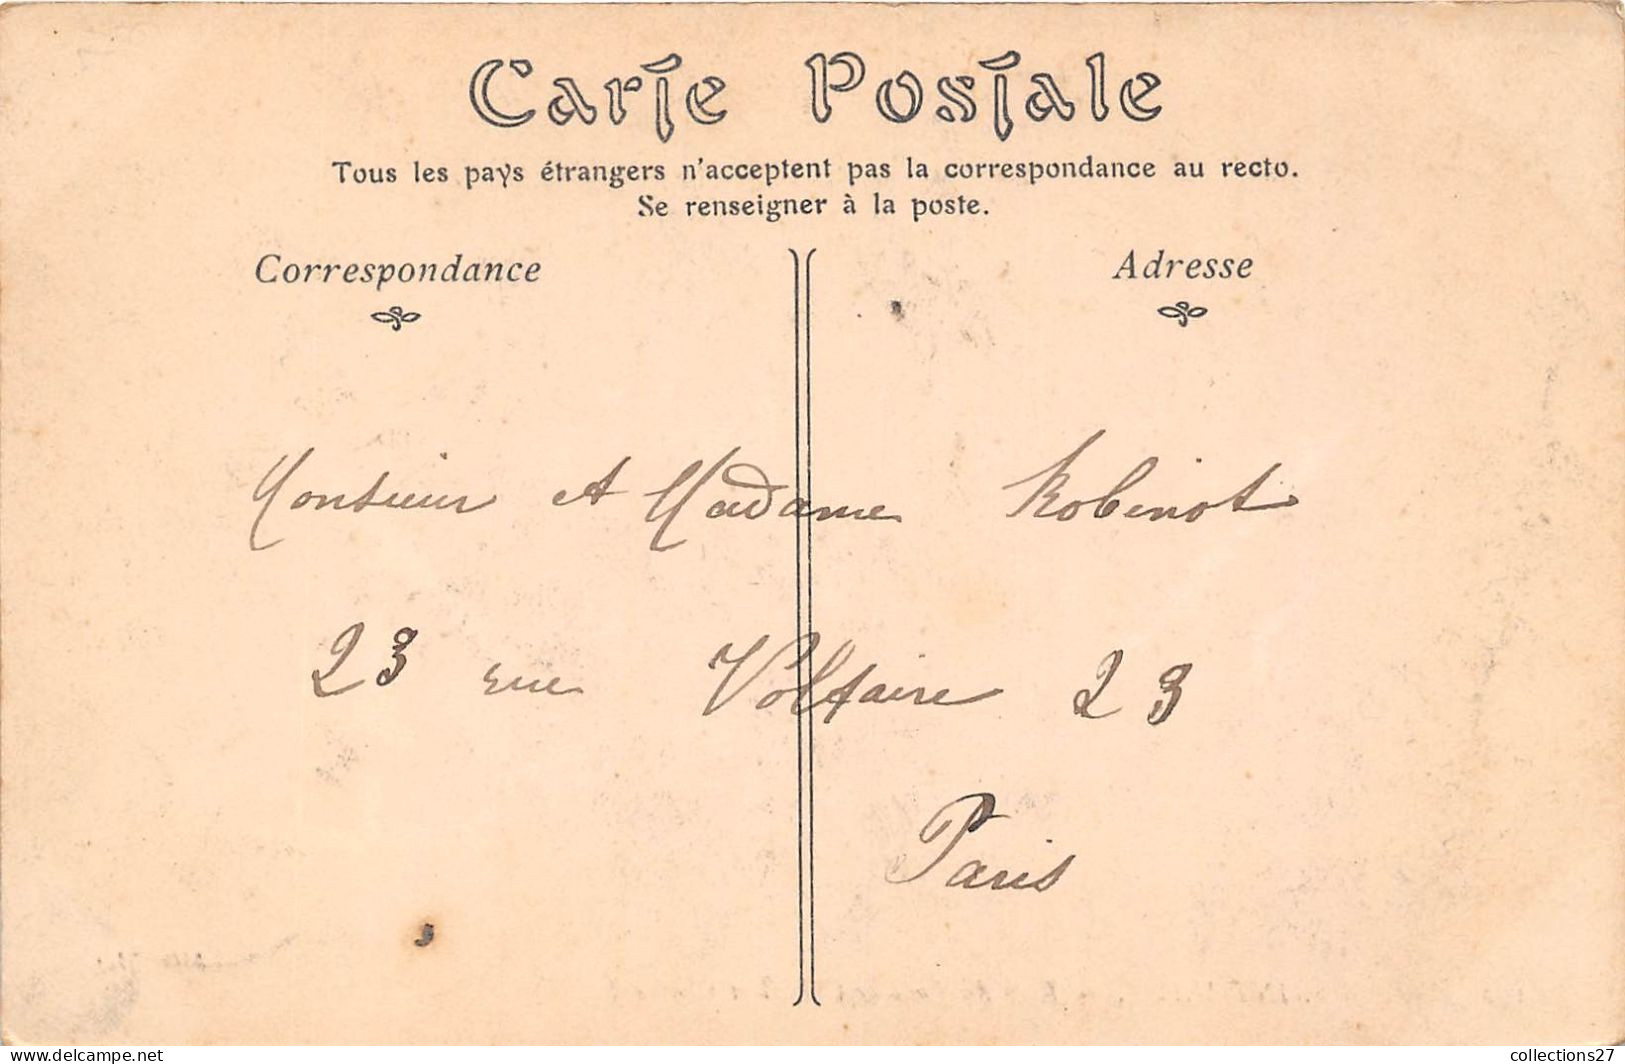 Carte Postale
Tous les pays étrangers n'acceptent pas la correspondance au recto.
Se renseigner à la poste.
Correspondance
Adresse
Monsieur et Madame Robinot
23 rue Voltaire 23
Paris
collections27